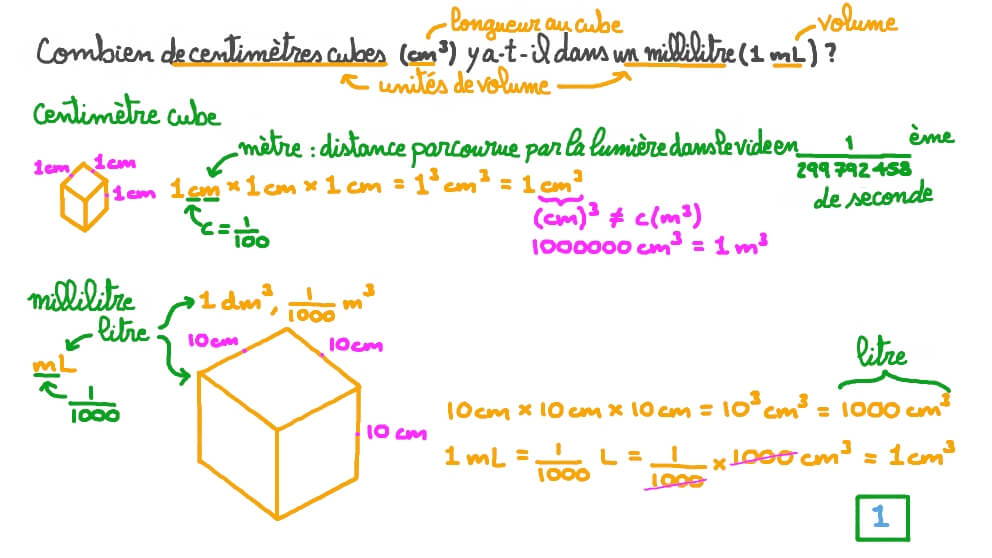 longueur au cube
volume
Combien de centimètres cubes (cm³) y a-t-il dans un millilitre (1 mL) ?
unités de volume
Centimètre cube
mètre : distance parcourue par la lumière dans le vide en 1/299 792 458 ème
de seconde
1cm 1cm
1cm
1 cm × 1 cm × 1 cm = 1³ cm³ = 1 cm³
c = 1/100
(cm)³ ≠ c(m³)
1000000 cm³ = 1 m³
millilitre
litre
1 dm³, 1/1000 m³
mL
1/1000
10cm
10cm
10 cm
litre
10cm × 10 cm × 10 cm = 10³ cm³ = 1000 cm³
1 mL = 1/1000 L = 1/1000 × 1000 cm³ = 1cm³
1